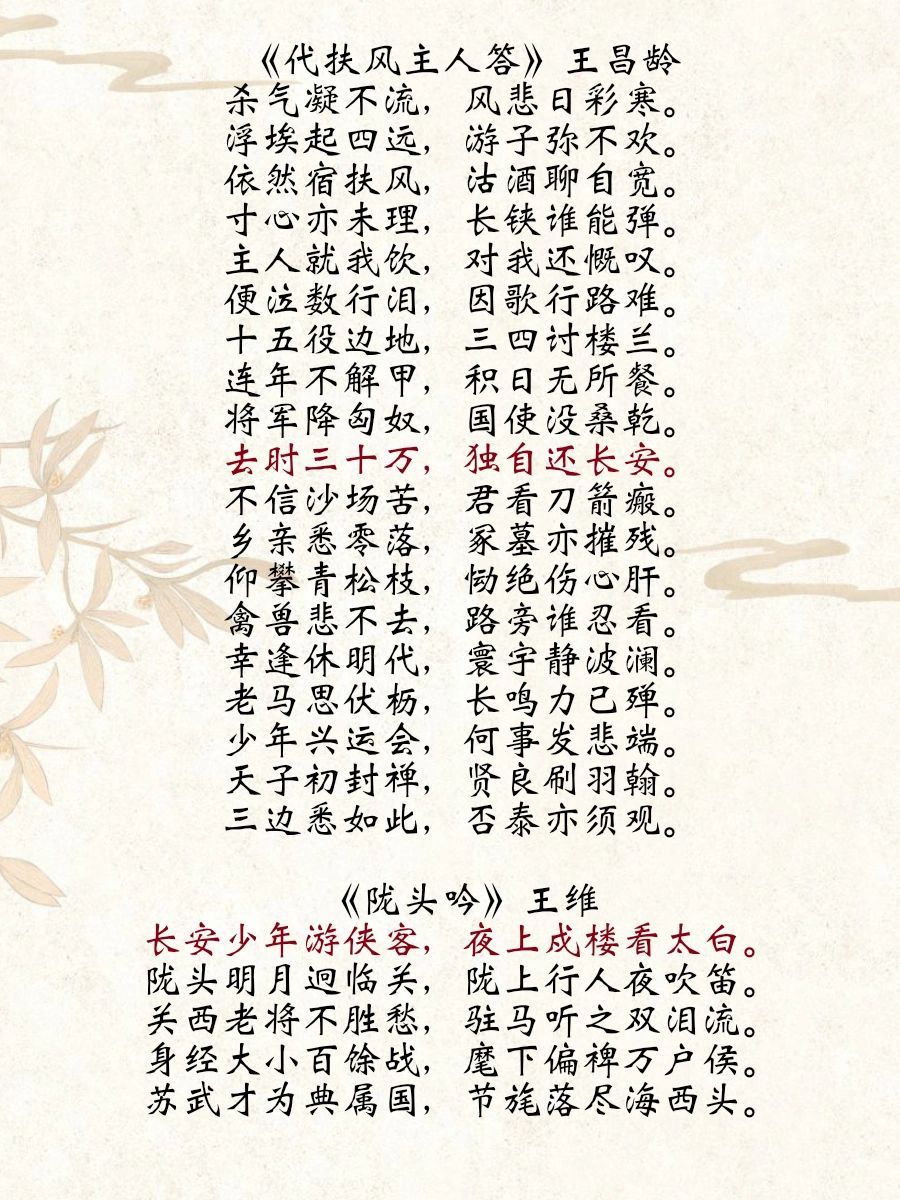 《代扶风主人答》王昌龄
杀气凝不流，风悲日彩寒。
浮埃起四远，游子弥不欢。
依然宿扶风，沽酒聊自宽。
寸心亦未理，长铗谁能弹。
主人就我饮，对我还慨叹。
便泣数行泪，因歌行路难。
十五役边地，三四讨楼兰。
连年不解甲，积日无所餐。
将军降匈奴，国使没桑乾。
去时三十万，独自还长安。
不信沙场苦，君看刀箭瘢。
乡亲悉零落，冢墓亦摧残。
仰攀青松枝，恸绝伤心肝。
禽兽悲不去，路旁谁忍看。
幸逢休明代，寰宇静波澜。
老马思伏枥，长鸣力已殚。
少年兴运会，何事发悲端。
天子初封禅，贤良刷羽翰。
三边悉如此，否泰亦须观。
《陇头吟》王维
长安少年游侠客，夜上戍楼看太白。
陇头明月迥临关，陇上行人夜吹笛。
关西老将不胜愁，驻马听之双泪流。
身经大小百馀战，麾下偏裨万户侯。
苏武才为典属国，节旄落尽海西头。